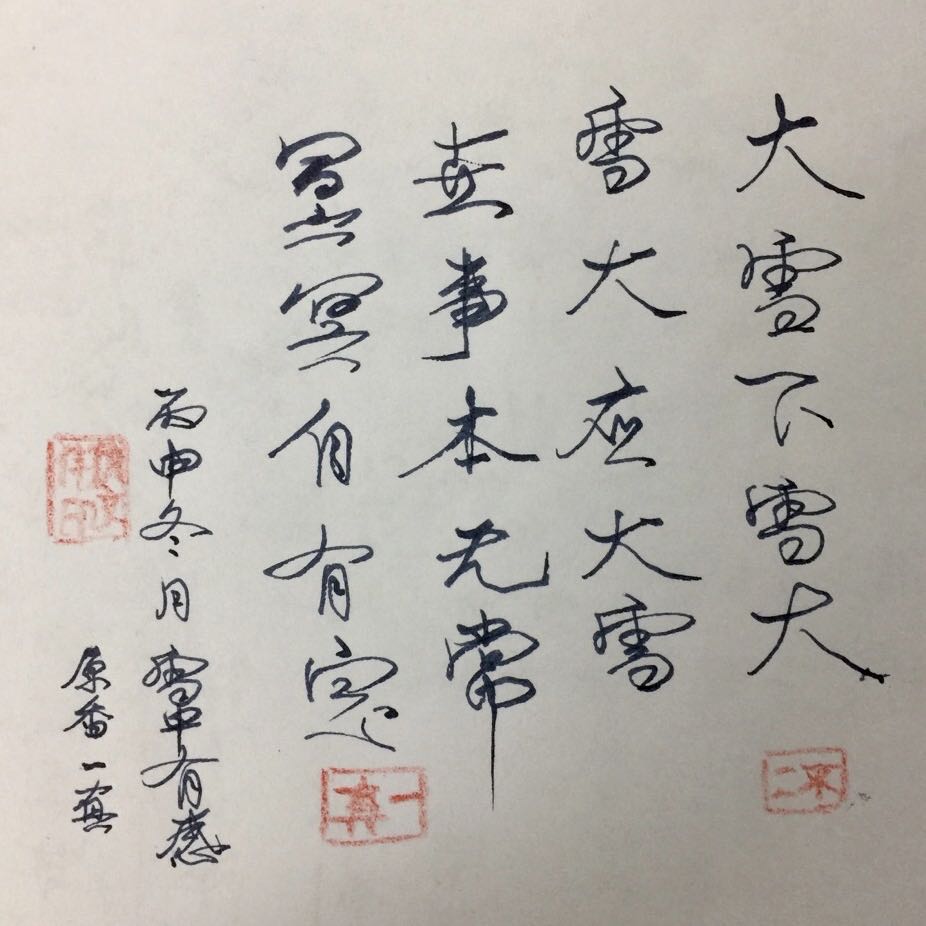 大雪下雪大
雪大应大雪
世事本无常
冥冥自有定
丙申冬月雪中有感
原番一真
不二
一真